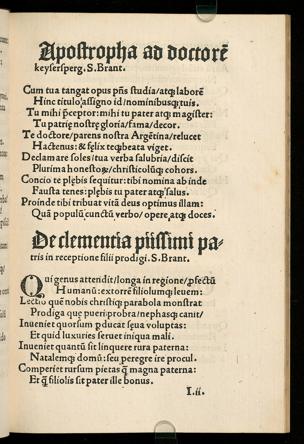 Apostropha ad doctorē
keysersperg. S. Brant.
Cum tua tangat opus p̄ns studia/atq; laborē
Hinc titulo/assigno id/nominibusq; tuis.
Tu mihi p̄ceptor: mihi tu pater atq; magister:
Tu patrię nostrę gloria/fama/decor.
Te doctore/parens nostra Argētina/relucet
Hactenus: & fęlix teq; beata viget.
Declamare soles/tua verba salubria/discit
Plurima honesto&/christicolūq; cohors.
Concio te plębis sequitur: tibi nomina ab inde
Fausta tenes: plębis tu pater atq; salus.
Proinde tibi tribuat vitā deus optimus illam:
Quā populū cunctū verbo/opere atq; doces.
De clementia piissimi pa-
tris in receptione filii prodigi. S. Brant.
Qui genus attendit/longa in regione/p̱fectū
Humanū: extorrē filiolumq; leuem:
Lectio quē nobis christiq; parabola monstrat
Prodiga quę pueri probra/nephasq; canit/
Inueniet quorsum p̱ducat sęua voluptas:
Et quid luxuries seruet iniqua mali.
Inueniet quantū sit linquere rura paterna:
Natalemq; domū: seu peregre ire procul.
Comperiet rursum pietas q̄ magna paterna:
Et q̄ filiolis sit pater ille bonus.
I.ii.